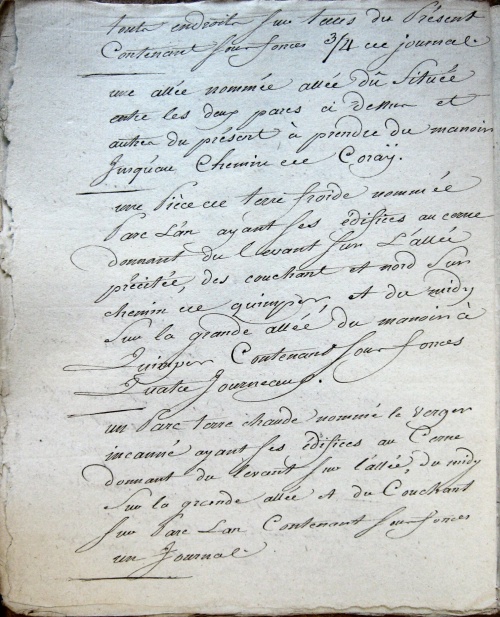 touts endroits sur terres du Présent
Contenant sous fonces 3/4 de journal.
une allée nommée allée dû Située
entre les deux parcs ci dessus et
autres du présent à prendre du manoir
Jusqu'au Chemin de Coraÿ.
une Pièce de terre froide nommée
Parc Lan ayant ses édifices au cerne
donnant du levant sur L'allée
précitée, des couchant et nord sur
chemin de quimper, et du midy
Sur la grande alleé du manoir à
Quimper Contenant sous fonces
Quatre Journeaux.
un Parc terre chaude nommé le verger
incanné ayant ses édifices au Cerne
donnant du levant sur l'allée, du midy
Sur la grande allée et du Couchant
sur Parc Lan Contenant sous fonces
un Journal.